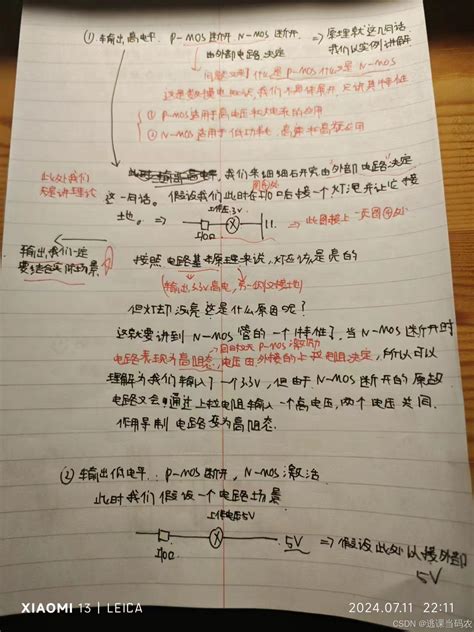 (1) 输出高电平. P-MOS断开. N-MOS断开. ⇒ 原理就这几句话
由外部电路决定 我们以实例讲解
问题又来了什么是P-MOS什么又是N-MOS
① P-MOS适用于高电压和大电流的应用
② N-MOS适用于低功耗、高速和高频应用
输出高电平, 我们来细细研究由外部电路决定
此处我们
只是讲理论
这一句话。 假设我们此时在I/O口后接一个灯泡并让它接
地。
上传压3.3V
I/O口
⇒ 此图接上一页图
按照电路基本原理来说, 灯应该是亮的
(输出3.3V高电, 另一端又接地)
但灯却没亮这是什么原因呢?
这就要讲到N-MOS管的一个特性了, 当N-MOS断开时
电路表现为高阻态, 电压由外接的上拉电阻决定, 所以可以
理解为我们输入了一个3.3V, 但由于N-MOS断开的原故
电路又会通过上拉电阻输入一个高电压, 两个电压共同
作用导制电路变为高阻态.
(2) 输出低电平: P-MOS断开, N-MOS激活
此时我们假设一个电路场景
上传电压5V
I/O口 5V ⇒ 假设此处以接外部
5V
XIAOMI 13 | LEICA
2024.07.11 22:11
CSDN @逃课当码农